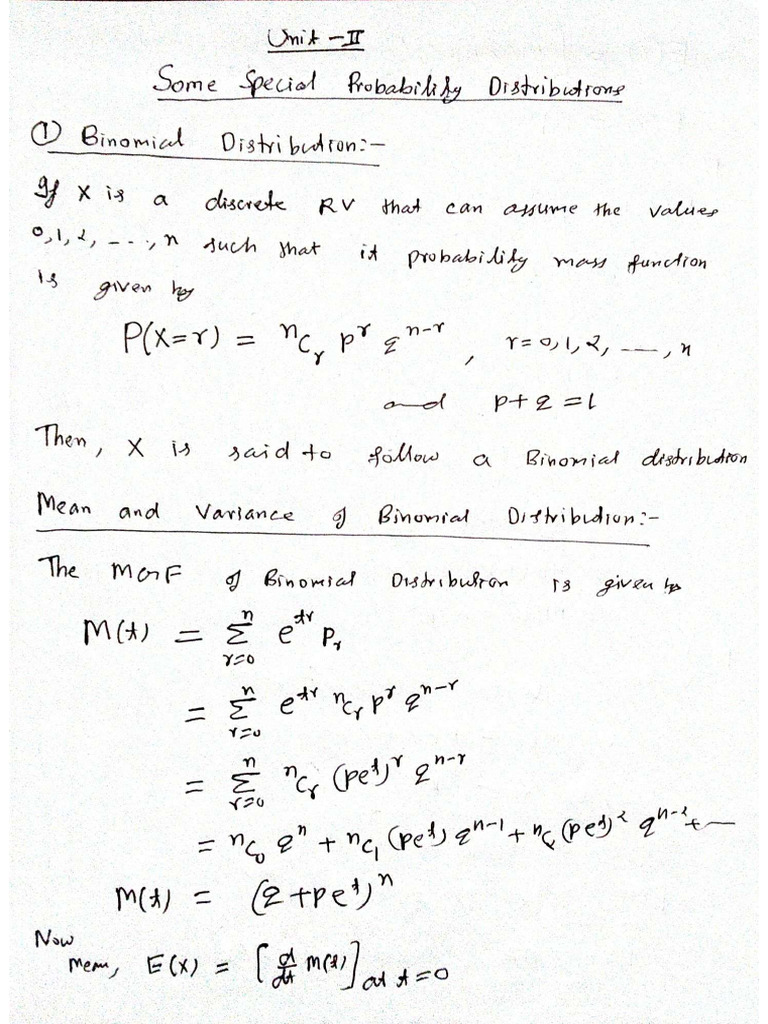 Unit - II
Some Special Probability Distributions
① Binomial Distribution:-
If X is a discrete RV that can assume the values
0, 1, 2, ---, n such that it probability mass function
is given by
P(X=r) = ⁿCᵣ pʳ qⁿ⁻ʳ , r = 0, 1, 2, ---, n
and p+q = 1
Then, X is said to follow a Binomial distribution
Mean and Variance of Binomial Distribution:-
The MGF of Binomial Distribution is given by
M(t) = Σ_{r=0}^{n} e^{tr} Pᵣ
= Σ_{r=0}^{n} e^{tr} ⁿCᵣ pʳ qⁿ⁻ʳ
= Σ_{r=0}^{n} ⁿCᵣ (pe^t)ʳ qⁿ⁻ʳ
= ⁿC₀ qⁿ + ⁿC₁ (pe^t) qⁿ⁻¹ + ⁿC₂ (pe^t)² qⁿ⁻² + ---
M(t) = (q + pe^t)ⁿ
Now
Mean, E(X) = [d/dt M(t)] at t=0